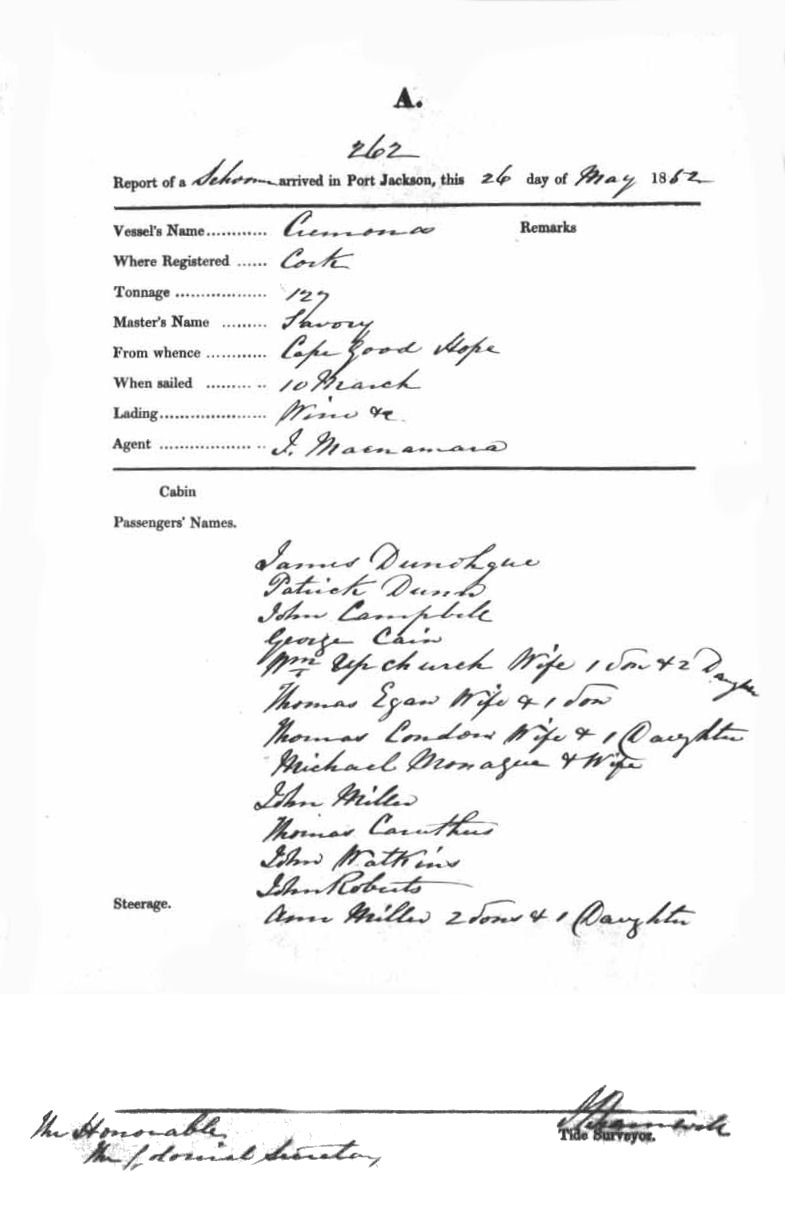 A.
262
Report of a Schoon arrived in Port Jackson, this 26 day of May 1852
Vessel's Name............ Cremona Remarks
Where Registered ...... Cork
Tonnage .................. 127
Master's Name ......... Savory
From whence ............ Cape Good Hope
When sailed ......... .. 10 March
Lading..................... Wine &c.
Agent .................. .. J. Macnamara
Cabin
Passengers' Names.
James Dunohgue
Patrick Dunn
John Campbell
George Cain
Wm Upchurch Wife 1 Son & 2 Daughter
Thomas Egan Wife & 1 Son
Thomas Condon Wife & 1 Daughter
Michael Monague & Wife
John Miller
Thomas Caruthers
John Watkins
John Roberts
Steerage.
Ann Miller 2 Sons & 1 Daughter
The Honorable
The Colonial Secretary
Tide Surveyor.